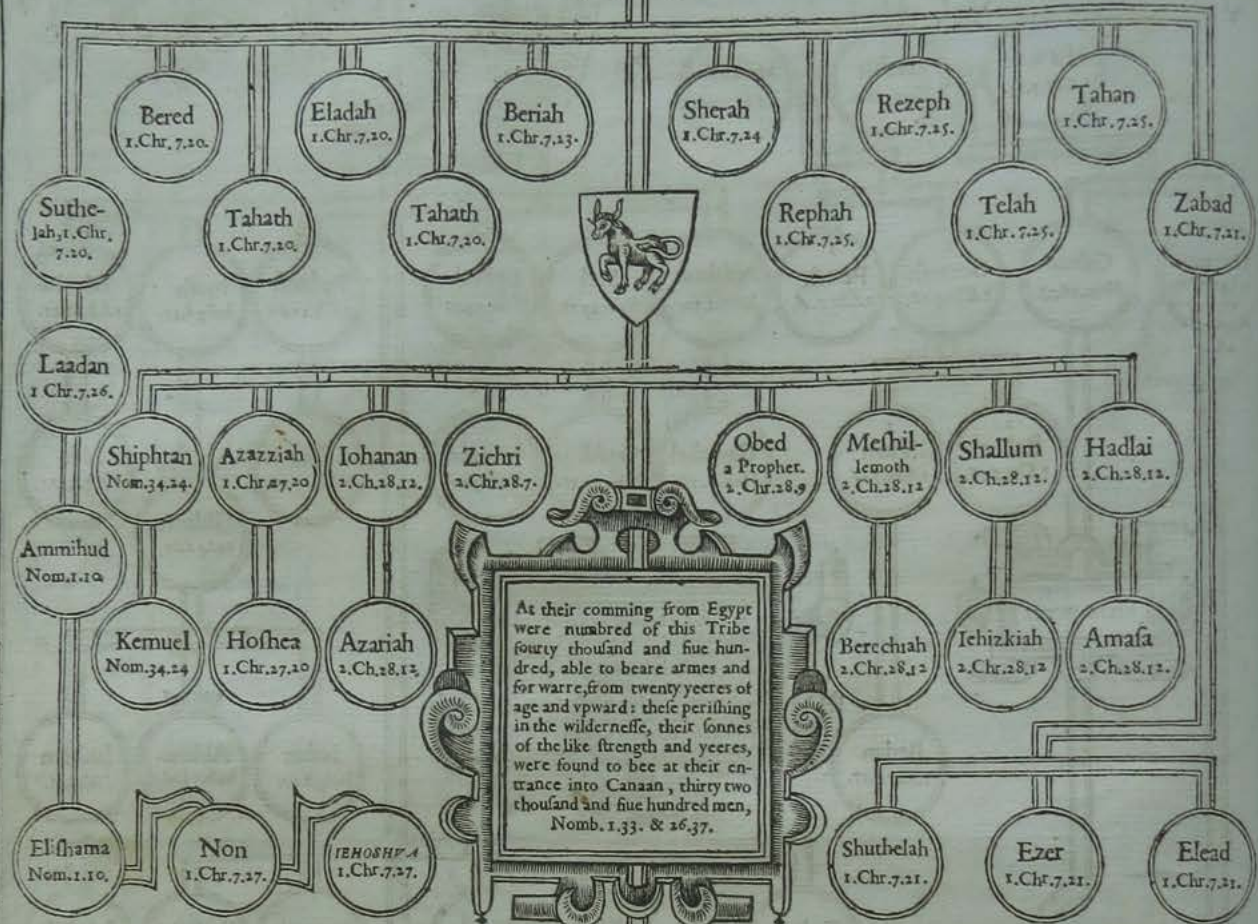 Bered
1.Chr.7.20.
Eladah
1.Chr.7.20.
Beriah
1.Chr.7.23.
Sherah
1.Chr.7.24
Rezeph
1.Chr.7.25.
Tahan
1.Chr.7.25.
Suthe-
lah,1.Chr.
7.20.
Tahath
1.Chr.7.20.
Tahath
1.Chr.7.20.
Rephah
1.Chr.7.25.
Telah
1.Chr.7.25.
Zabad
1.Chr.7.21.
Laadan
1 Chr.7.26.
Shiphtan
Nom.34.24.
Azazziah
1.Chr.27.20
Iohanan
2.Ch.28.12.
Zichri
2.Chr.28.7.
Obed
a Prophet.
2.Chr.28.9
Meſhil-
lemoth
2.Ch.28.12
Shallum
2.Ch.28.12.
Hadlai
2.Ch.28.12.
Ammihud
Nom.1.10.
Kemuel
Nom.34.24
Hoſhea
1.Chr.27.20
Azariah
2.Ch.28.12.
Berechiah
2.Chr.28.12
Iehizkiah
2.Chr.28.12
Amaſa
2.Ch.28.12.
At their comming from Egypt
were numbred of this Tribe
fourty thouſand and fiue hun-
dred, able to beare armes and
for warre,from twenty yeeres of
age and vpward: theſe periſhing
in the wilderneſſe, their ſonnes
of the like ſtrength and yeeres,
were found to bee at their en-
trance into Canaan, thirty two
thouſand and fiue hundred men,
Nomb. 1.33. & 26.37.
Eliſhama
Nom.1.10.
Non
1.Chr.7.27.
IEHOSHVA
1.Chr.7.27.
Shuthelah
1.Chr.7.21.
Ezer
1.Chr.7.21.
Elead
1.Chr.7.21.